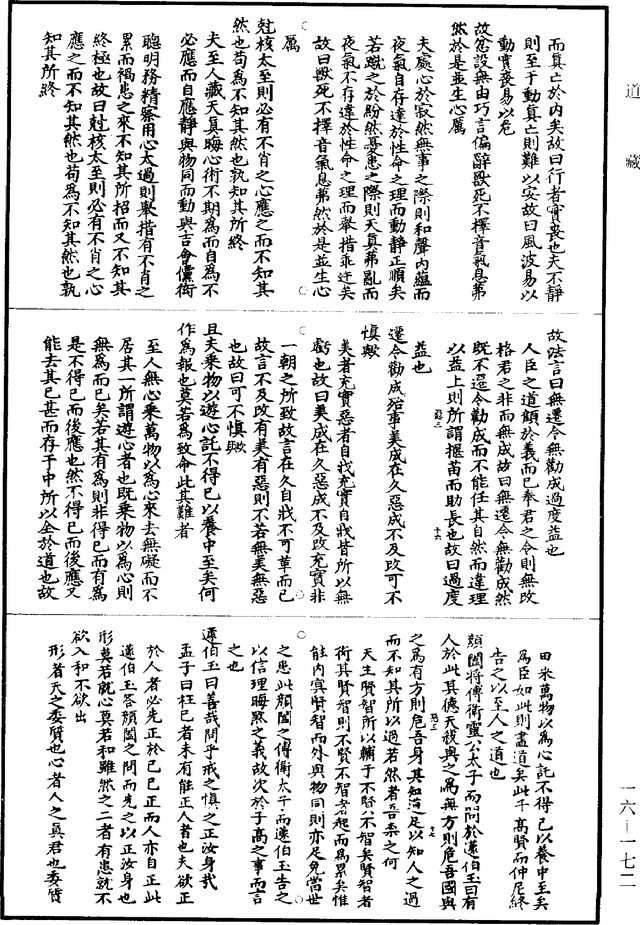 道藏
而真亡於内矣故曰行者實喪也夫不靜
則至于動真亡則難以安故曰風波易以
動實喪易以危
故忿設無由巧言偏辭獸死不擇音氣息茀
然於是並生心厲
夫處心於寂然無事之際則和聲内蘊而
夜氣自存達於性命之理而動靜正順矣
若蹴之於紛然憂患之際則天真茀亂而
夜氣不存違於性命之理而舉措乖迕矣
故曰獸死不擇音氣息茀然於是並生心
厲
尅核太至則必有不肖之心應之而不知其
然也苟為不知其然也孰知其所終
夫至人藏天真晦心術不期為而自為不
必應而自應靜與物同而動與吉會儻衒
聰明務精察用心太過則舉措有不肖之
累而禍患之來不知其所招而又不知其
終極也故曰尅核太至則必有不肖之心
應之而不知其然也苟為不知其然也孰
知其所終
故法言曰無遷令無勸成過度益也
人臣之道顧於義而已奉君之令則無改
格君之非而無成故曰無遷令無勸成然
既不遷令勸成而不能任其自然而違理
以益上則所謂揠苗而助長也故曰過度
益也
遷令勸成殆事美成在久惡成不及改可不
慎歟
美者充實惡者自戕充實自戕皆所以無
虧也故曰美成在久惡成不及改充實非
一朝之所致故言在久自戕不可革而已
故言不及改有美有惡則不若無美無惡
也故曰可不慎歟
且夫乘物以遊心託不得已以養中至矣何
作為報也莫若為致命此其難者
至人無心乘萬物以為心來去無礙而不
居其一所謂遊心者也既乘物以為心則
無為而已矣若其有為則非得已而有為
是不得已而後應也然不得已而後應又
能去其已甚而存于中所以全於道也故
曰乘萬物以為心託不得已以養中至矣
為臣如此則盡道矣此子高賢而仲尼終
告之以至人之道也
顏闔將傅衛靈公太子而問於蘧伯玉曰有
人於此其德天殺與之為無方則危吾國與
之為有方則危吾身其知適足以知人之過
而不知其所以過若然者吾柰之何
天生賢智所以輔于不賢不智矣賢智者
衒其賢智則不賢不智者起而為累矣惟
能内冥賢智而外與物同則亦足免當世
之患此顏闔之傅衛太子而蘧伯玉告之
以信理晦黙之義故次於子高之事而言
之也
蘧伯玉曰善哉問乎戒之慎之正汝身哉
孟子曰枉已者未有能正人者也夫欲正
於人者必先正於已已正而人亦自正此
蘧伯玉答顏闔之問而先之以正汝身也
形莫若就心莫若和雖然之二者有患就不
欲入和不欲出
形者天之委質也心者人之真君也委質
一六—一七二